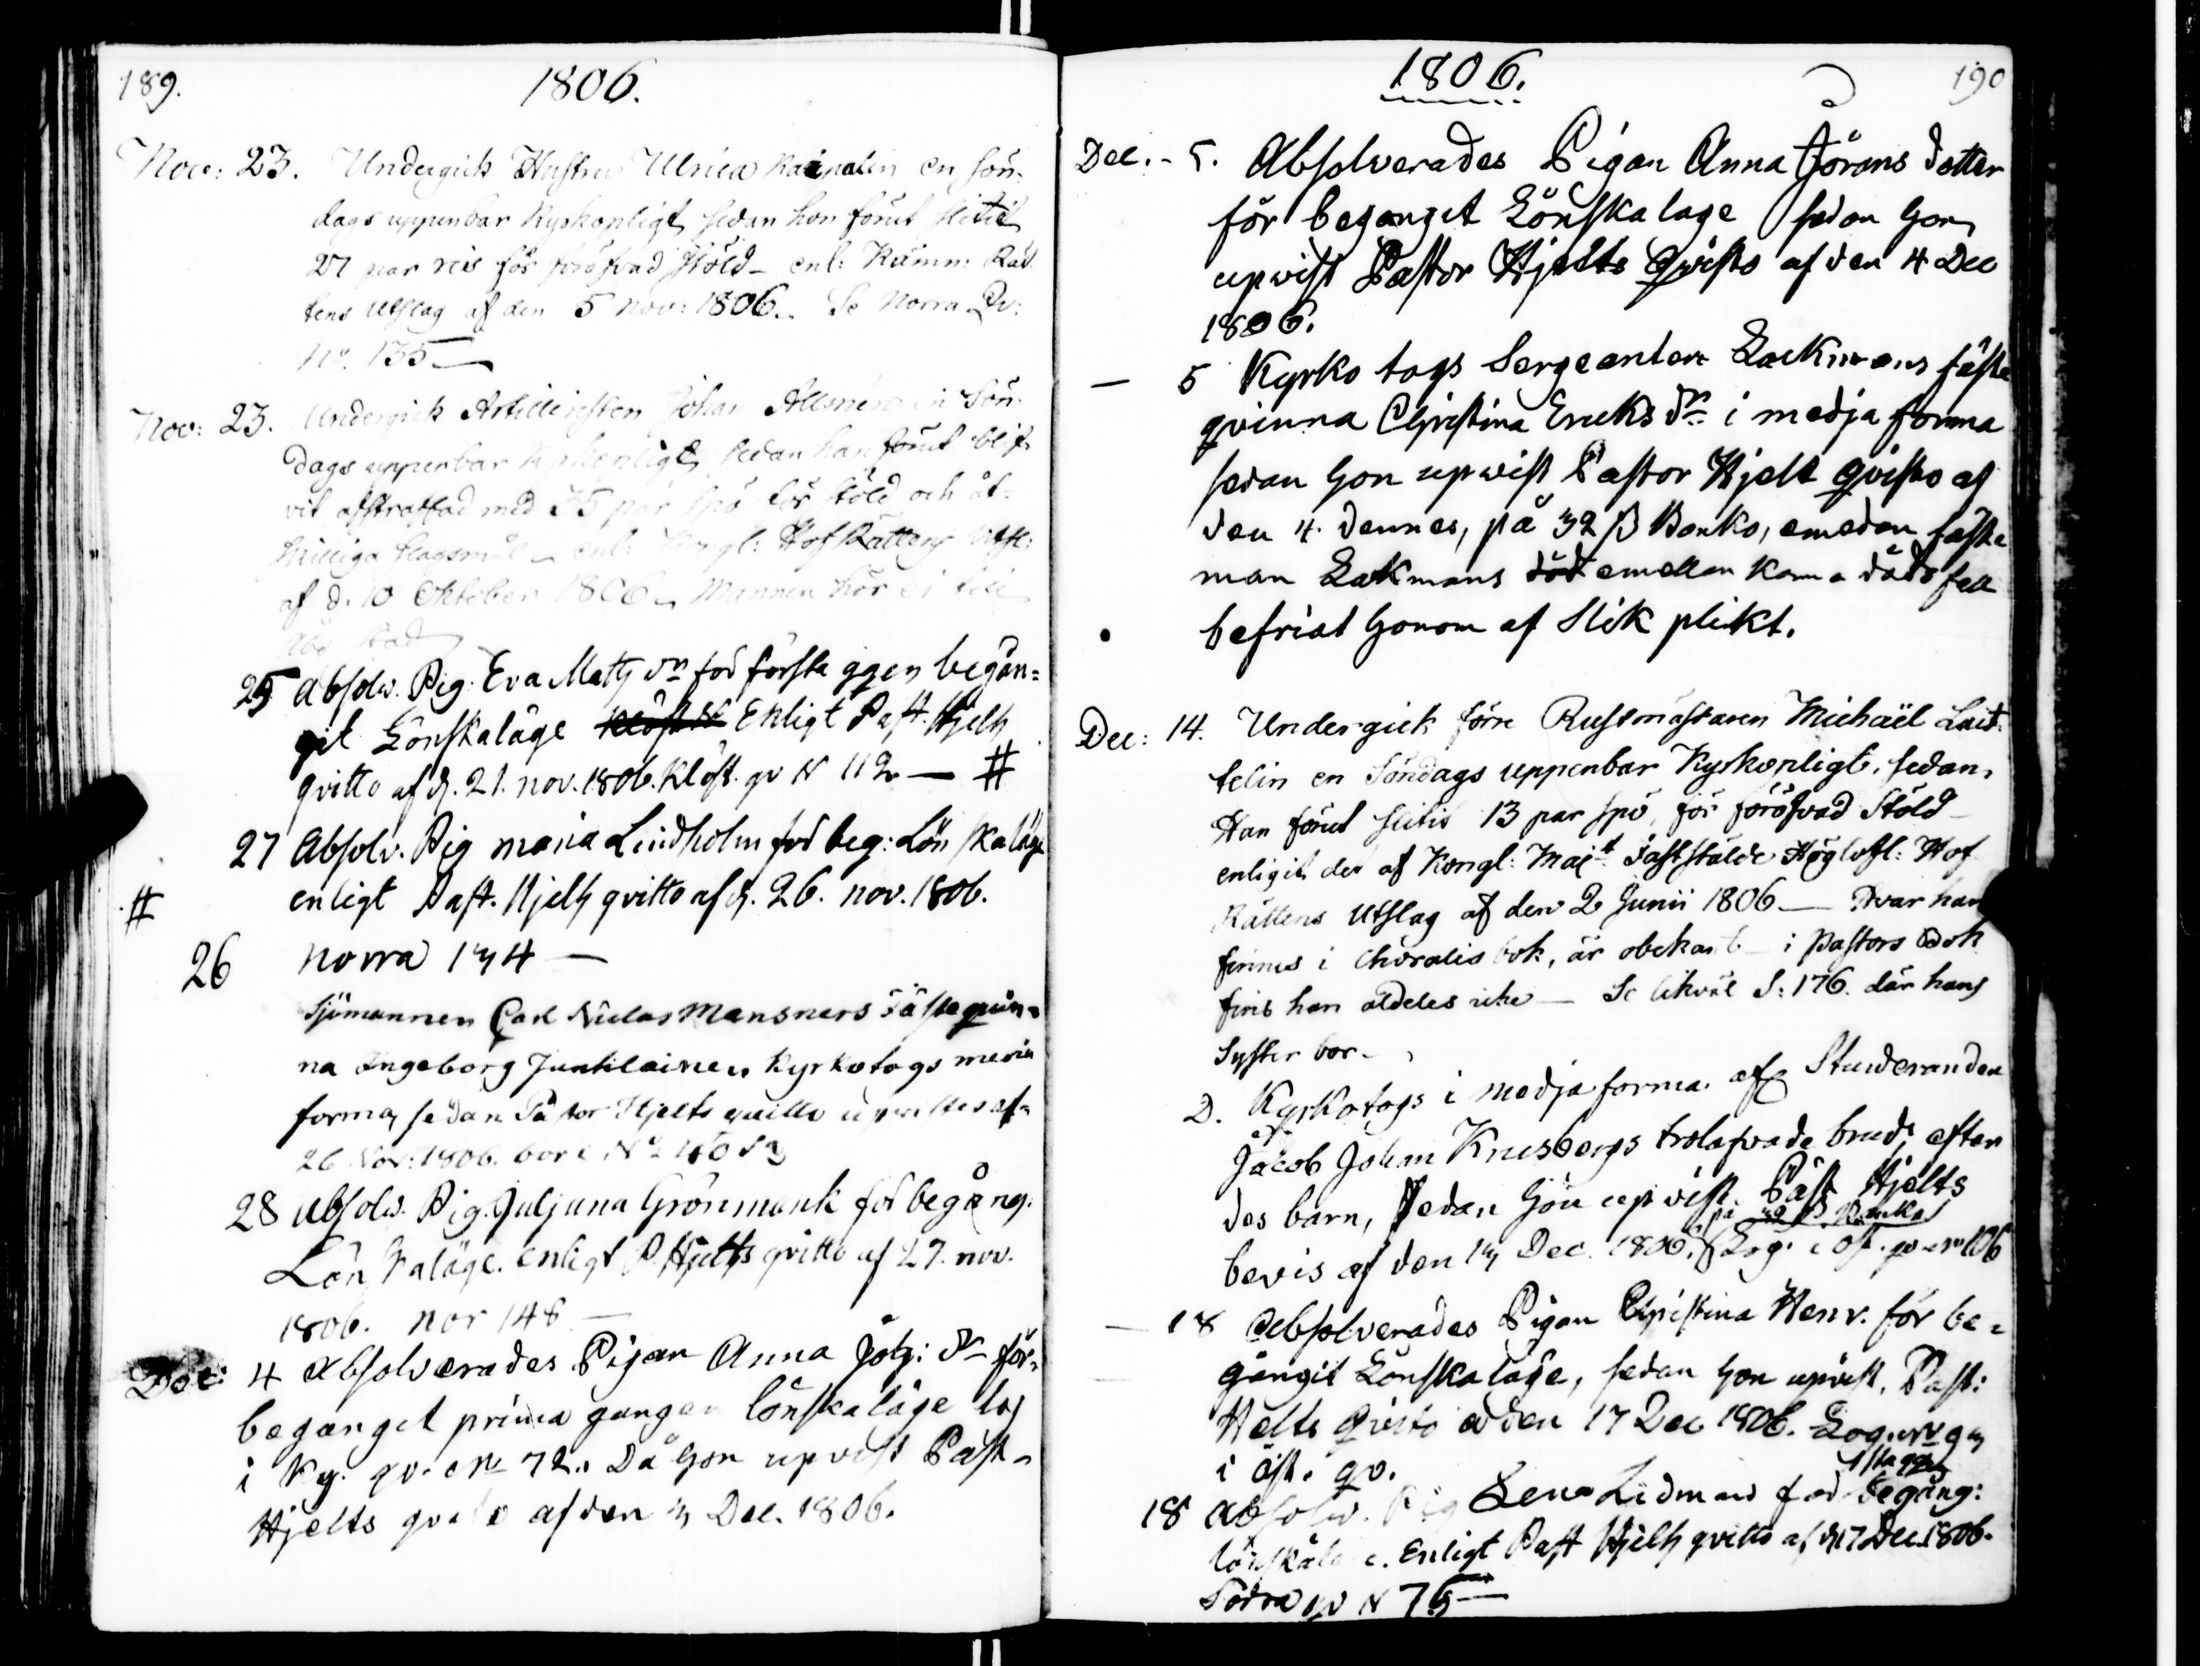 189.
1806.
Nov: 23. Undergick Hustru Ulrica en Sön-
dags uppenbar Kyrkopligt, sedan hon förut slitit
27 par ris för föröfvad Stöld - enl: Kämn: Rät
tens Utslag af den 5 Nov: 1806. Se Norra Qv:
No. 135 —
Nov: 23. Undergick Artilleristen Johan en Sön-
dags uppenbar Kyrkopligt, sedan han förut blif-
vit afstraffad med 35 par spö för stöld och åt-
skilliga slagsmål - enl: Kongl: HofRättens Utsl:
af d. 10 Oktober 1806. Mannen hör ej till
Åbo stad
25 Absolv. Pig. Eva Matts dr för första ggen begån=
git Lönskaläge Enligt Past. Hjelts
qvitto af d. 21. nov. 1806. Klöst. qv N 112 — #
27 Absolv. Pig Maria Lindholm för beg: Lönskaläge
enligt Past. Hjelts qvitto af d. 26. nov. 1806.
#
26 Norra 134 —
Sjömannen Carl Niclas Mansners Fästeqvin=
na Ingeborg Juntilainen Kyrkotogs media
forma, sedan Pastor Hjelts quitto upvistes af
26 Nov: 1806. bor i No
28 Absolv. Pig. Juljana Grönmark för begång.
Lönskaläge. enligt P. Hjelts qvitto af 27. nov.
1806. nor 148 —
Dec: 4 Absolverades Pigan Anna Joh: dr för
beganget prima gangen lönskaläge log
i Ky. qv. No 72. Då hon upvist Past-
Hjelts af den 3 Dec. 1806.
1806.
190
Dec. - 5. Absolverades Pigan Anna Jörans dotter
för beganget Lönskalage sedan hon
upvist Pastor Hjelts qvitto af den 4 Dec
1806.
— 5 Kyrko togs Sergeanten Lackmans fäste
qvinna Christina Ericks dr i medja forma
sedan hon upvist Pastor Hjelt qvitto af
den 4 dennes, på 32 ß Banko, emedan fäste
man Lakmans död emellan kamna dödsfall
befriat honom af slik plikt.
Dec: 14. Undergick förre Rustmästaren Michaël Lait-
telin en Söndags uppenbar Kyrkopligt, sedan
Han förut slitit 13 par spö, för föröfvad Stöld -
enligit den af Kongl: Maj:t fastställde Höglofl: Hof
Rättens Utslag af den 2 Junii 1806 — Hvar han
finnes i Choralis bok, är obekant - i Pastors Bok
fins han aldeles icke — Se likväl S: 176. där hans
Syster bor -
D. Kyrkotogs i medja forma af Studeranden
Jacob Johan Krusbergs trolofvade brud, efter
des barn, sedan hon upvist. Past Hjelts
på 32 ß Banko
bevis af den 13 Dec. 1806. Log. i öst. qv. No 106
— 18 Absolverades Pigan Christina Henr. för be=
gångit Lönskaläge, sedan hon upvist, Past:
Helts qvitto a den 17 Dec 1806. Log. No 93
i öst. qv.
1sta ggen
18 Absolv. Pig Lena Lidman för begång:
Enligt Past Hjelts qvitto af d. 17 Dec. 1806.
Södra qv N 75 —